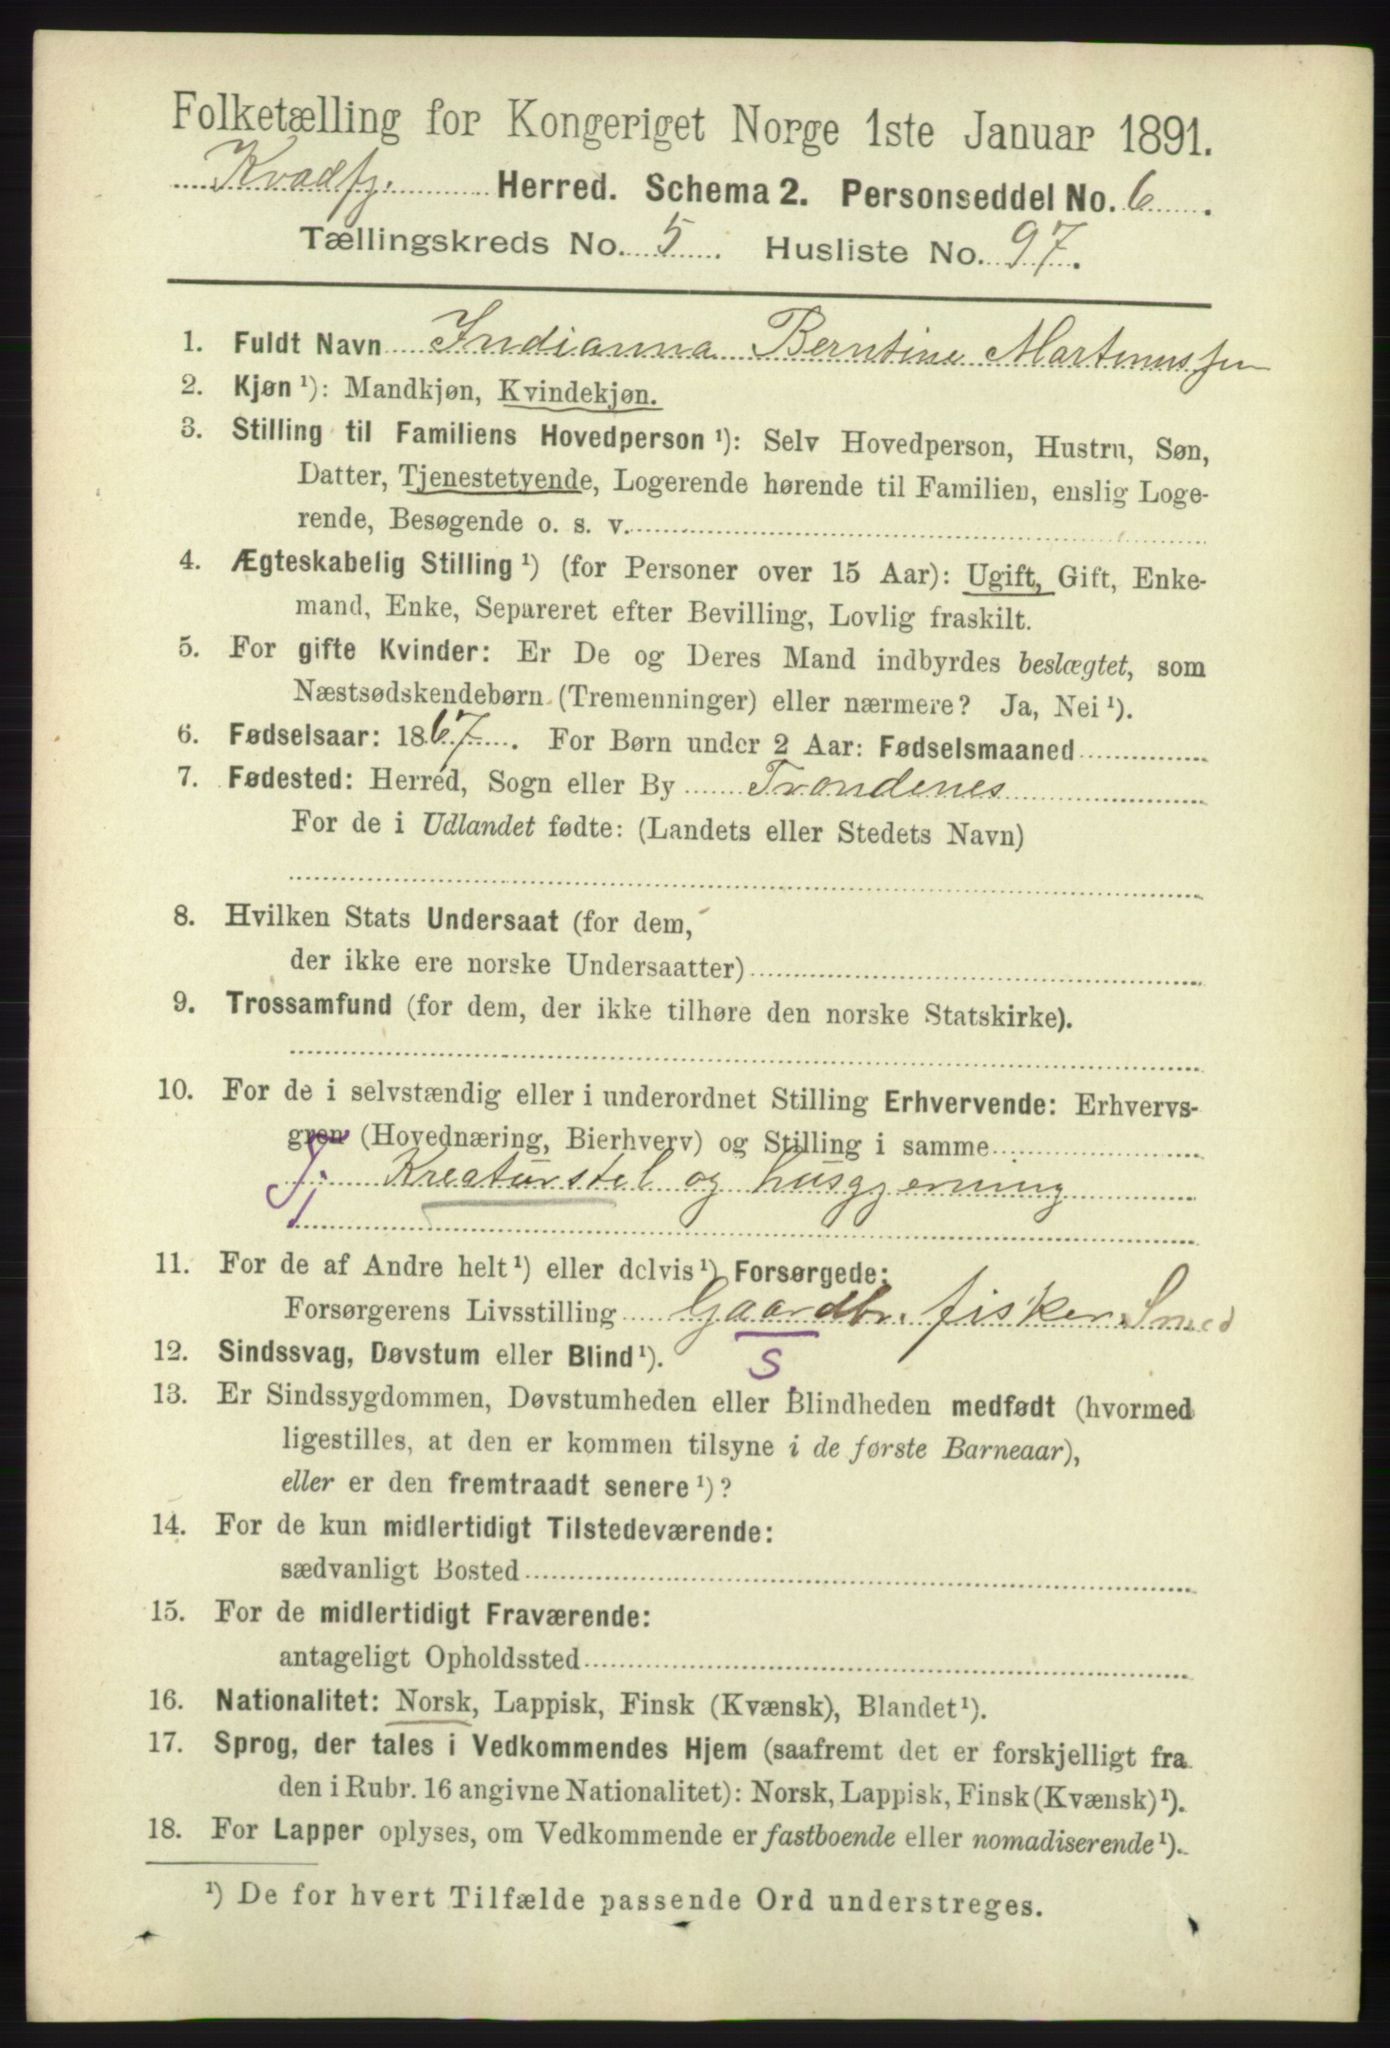 Folketælling for Kongeriget Norge 1ste Januar 1891.
Kvadfj. Herred. Schema 2. Personseddel No. 6.
Tællingskreds No. 5. Husliste No. 97.
1. Fuldt Navn Indianna Berntine Martinussen
2. Kjøn ¹): Mandkjøn, Kvindekjøn.
3. Stilling til Familiens Hovedperson ¹): Selv Hovedperson, Hustru, Søn,
Datter, Tjenestetyende, Logerende hørende til Familien, enslig Loge-
rende, Besøgende o. s. v.
4. Ægteskabelig Stilling ¹) (for Personer over 15 Aar): Ugift, Gift, Enke-
mand, Enke, Separeret efter Bevilling, Lovlig fraskilt.
5. For gifte Kvinder: Er De og Deres Mand indbyrdes beslægtet, som
Næstsødskendebørn (Tremenninger) eller nærmere? Ja, Nei ¹).
6. Fødselsaar: 1867. For Børn under 2 Aar: Fødselsmaaned
7. Fødested: Herred, Sogn eller By Trondenes
For de i Udlandet fødte: (Landets eller Stedets Navn)
8. Hvilken Stats Undersaat (for dem,
der ikke ere norske Undersaatter)
9. Trossamfund (for dem, der ikke tilhøre den norske Statskirke).
10. For de i selvstændig eller i underordnet Stilling Erhvervende: Erhvervs-
gren (Hovednæring, Bierhverv) og Stilling i samme
Kreaturstel og husgjerning
11. For de af Andre helt ¹) eller delvis ¹) Forsørgede:
Forsørgerens Livsstilling Gaardbr. fisker Smed
12. Sindssvag, Døvstum eller Blind ¹). S.
13. Er Sindssygdommen, Døvstumheden eller Blindheden medfødt (hvormed
ligestilles, at den er kommen tilsyne i de første Barneaar),
eller er den fremtraadt senere ¹)?
14. For de kun midlertidigt Tilstedeværende:
sædvanligt Bosted
15. For de midlertidigt Fraværende:
antageligt Opholdssted
16. Nationalitet: Norsk, Lappisk, Finsk (Kvænsk), Blandet ¹).
17. Sprog, der tales i Vedkommendes Hjem (saafremt det er forskjelligt fra
den i Rubr. 16 angivne Nationalitet): Norsk, Lappisk, Finsk (Kvænsk) ¹).
18. For Lapper oplyses, om Vedkommende er fastboende eller nomadiserende ¹).
¹) De for hvert Tilfælde passende Ord understreges.